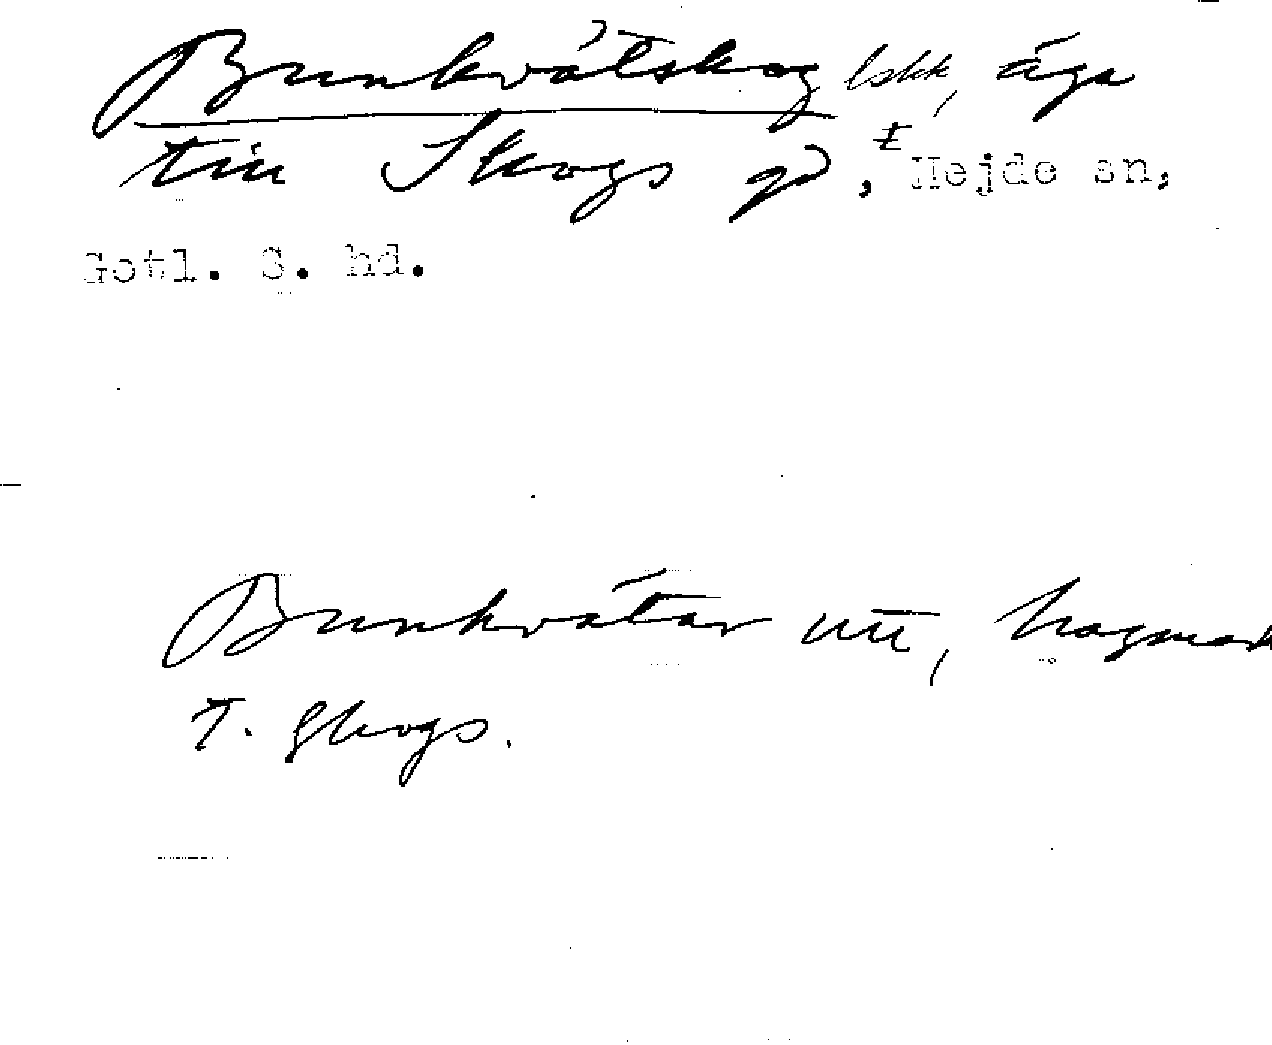 Bunkvátskog lskk, äga
till Skogs gd, Hejde sn,
Gotl. S. hd.
Bunkvátar utt, hagmark
T. Skogs.